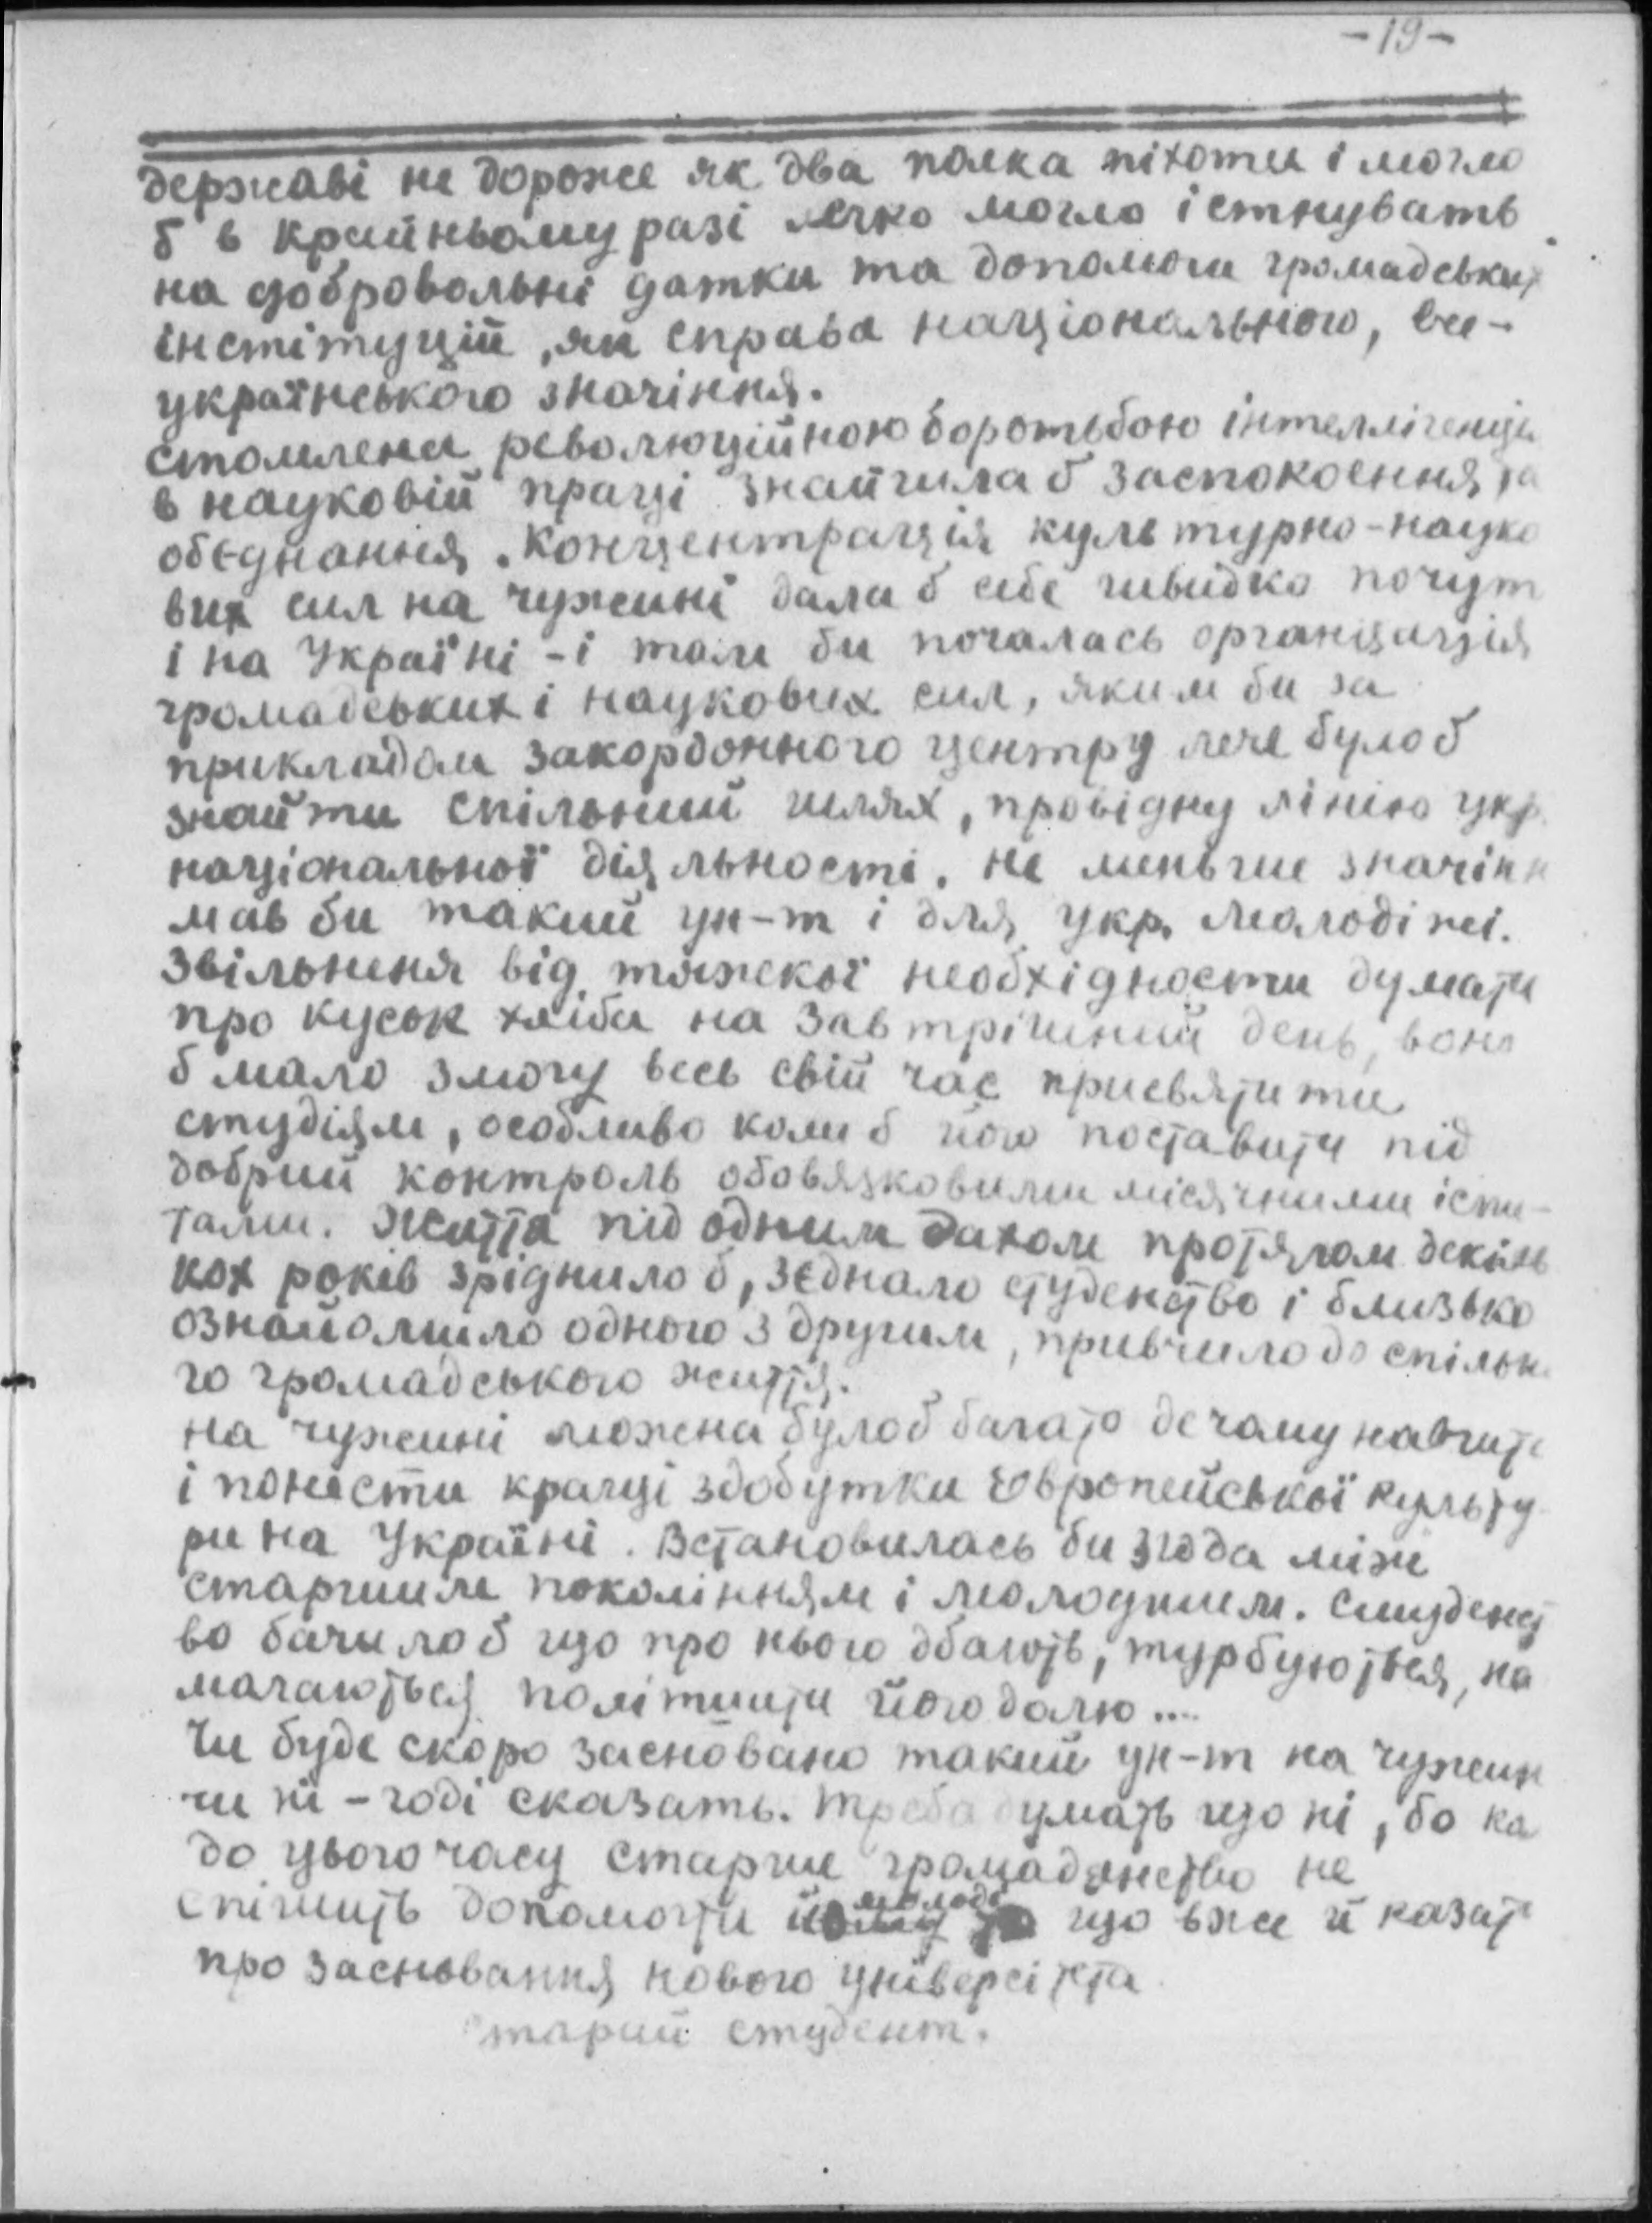 -19-
державі не дороже як два полка піхоти і могло
б в крайньому разі легко могло істнувать
на добровольні датки та допомоги громадських
інстітуцій, як справа національного, все-
українського значіння.
Стомлена революційною боротьбою інтеллігенція
в науковій праці знайшла б заспокоення та
обєднання. Концентрація культурно-науко
вих сил на чужині дала б себе швидко почут
і на Україні - і там би почалась організація
громадських і наукових сил, яким би за
прикладом закордонного центру легче було б
знайти спільний шлях, провідну лінію укр.
національної діяльності. Не меньше значінн
мав би такий ун-т і для укр. молоді жі.
Звільненя від тяжкої необхідности думати
про кусок хліба на завтрішний день, вона
б мало змогу весь свій час присвятити
студіям, особливо коли б його поставити під
добрий контроль обовязковими місячними іспи-
тами. Життя під одним дахом протягом декіль
кох років зріднило б, зєднало студенство і близько
ознайомило одного з другим, привчило до спільн
го громадського життя.
На чужині можна було б багато дечому навчити
і понести кращі здобутки Європейської культу
ри на Україні. Встановилась би згода між
старшим поколінням і молодшим. Студенст
во бачило б що про нього дбають, турбуються, на
магаються поліпшити його долю....
Чи буде скоро засновано такий ун-т на чужин
чи ні - годі сказать. Треба думать що ні, бо ка
до цього часу старше громадянство не
спішить допомогти молоді що вже й казат
про заснування нового університета
старий студент.